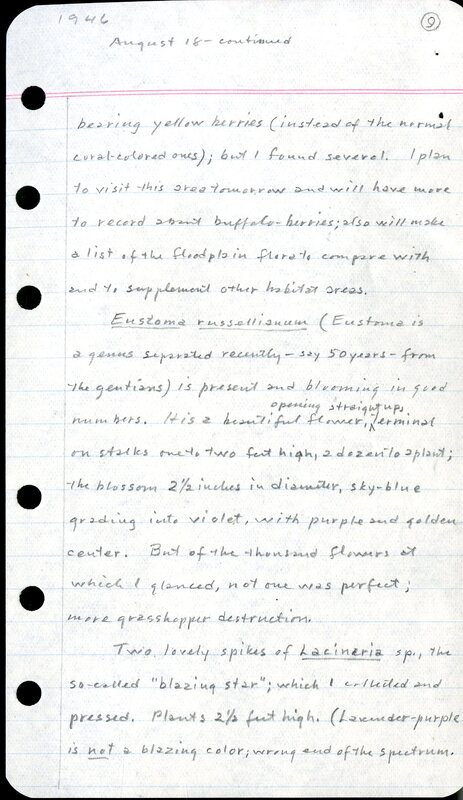 1946
9
August 18 - continued
bearing yellow berries (instead of the normal
coral-colored ones); but I found several. I plan
to visit this area tomorrow and will have more
to record about buffalo-berries; also will make
a list of the floodplain flora to compare with
and to supplement other habitat areas.
Eustoma russellianum (Eustoma is
a genus separated recently - say 50 years - from
the gentians) is present and blooming in good
opening straight up,
numbers. It is a beautiful flower, terminal
on stalks one to two feet high, a dozen to a plant;
the blossom 2½ inches in diameter, sky-blue
grading into violet, with purple and golden
center. But of the thousand flowers at
which I glanced, not one was perfect;
more grasshopper destruction.
Two lovely spikes of Lacinaria sp., the
so-called "blazing star"; which I collected and
pressed. Plants 2½ feet high. (Lavender-purple
is not a blazing color; wrong end of the spectrum.